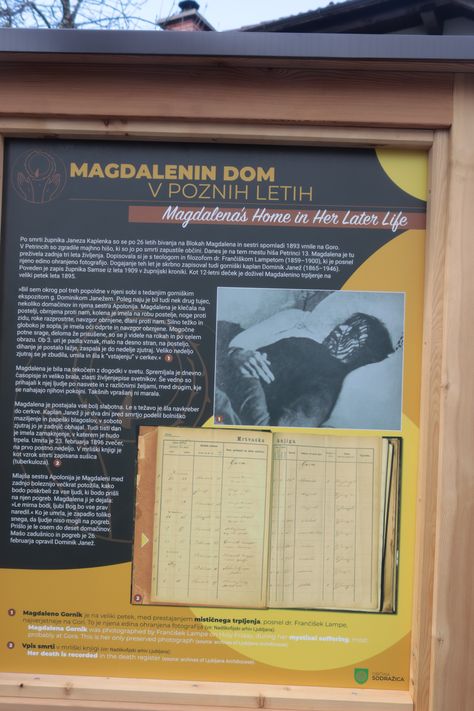 MAGDALENIN DOM
V POZNIH LETIH
Magdalena's Home in Her Later Life
Po smrti župnika Janeza Kaplenka so se po 26 letih bivanja na Blokah Magdalena in sestri spomladi 1893 vrnile na Goro.
V Petrincih so zgradile majhno hišo, ki so jo po smrti zapustile občini. Danes je na tem mestu hiša Petrinci 13. Magdalena je tu
preživela zadnja tri leta življenja. Dopisovala si je s teologom in filozofom dr. Frančiškom Lampetom (1859–1900), ki je posnel
njeno edino ohranjeno fotografijo. Dogajanje teh let je skrbno zapisoval tudi gorniški kaplan Dominik Janež (1865–1946).
Poveden je zapis župnika Samse iz leta 1909 v župnijski kroniki. Kot 12-letni deček je doživel Magdalenino trpljenje na
veliki petek leta 1895.
»Bil sem okrog pol treh popoldne v njeni sobi s tedanjim gorniškim
ekspozitom g. Dominikom Janežem. Poleg naju je bil tudi nek drug tujec,
nekoliko domačinov in njena sestra Apolonija. Magdalena je klečala na
postelji, obrnjena proti nam, kolena je imela na robu postelje, noge proti
zidu, roke razprostrte, navzgor obrnjene, dlani proti nam. Silno težko in
globoko je sopla, je imela oči odprte in navzgor obrnjene. Mogočne
potne srage, deloma že prisušene, so se ji videle na rokah in po celem
obrazu. Ob 3. uri je padla vznak, malo na desno stran, na posteljo,
dihanje je postalo lažje, zaspala je do nedelje zjutraj. Veliko nedeljo
zjutraj se je zbudila, umila in šla k "vstajenju" v cerkev.« 1
Magdalena je bila na tekočem z dogodki v svetu. Spremljala je dnevno
časopisje in veliko brala, zlasti življenjepise svetnikov. Še vedno so
prihajali k njej ljudje po nasvete in z različnimi željami, med drugim, kje
se nahajajo njihovi pokojni. Takšnih vprašanj ni marala.
Magdalena je postajala vse bolj slabotna. Le s težavo je šla navkreber
do cerkve. Kaplan Janež ji je dva dni pred smrtjo podelil bolniško
maziljenje in papeški blagoslov, v soboto
zjutraj jo je zadnjič obhajal. Tudi tisti dan
je imela zamaknjenje, v katerem je hudo
trpela. Umrla je 23. februarja 1896 zvečer,
na prvo postno nedeljo. V mrliški knjigi je
kot vzrok smrti zapisana sušica
(tuberkuloza). 2
Mlajša sestra Apolonija je Magdaleni med
zadnjo boleznijo večkrat potožila, kako
bodo poskrbeli za vse ljudi, ki bodo prišli
na njen pogreb. Magdalena ji je dejala:
»Le mirna bodi, ljubi Bog bo vse prav
naredil.« Ko je umrla, je zapadlo toliko
snega, da ljudje niso mogli na pogreb.
Prišlo je le osem do deset domačinov.
Mašo zadušnico in pogreb je 26.
februarja opravil Dominik Janež.
1
Mrtvaška knjiga
2
1 Magdaleno Gornik je na veliki petek, med prestajanjem mističnega trpljenja, posnel dr. Frančišek Lampe,
najverjetneje na Gori. To je njena edina ohranjena fotografija (vir: Nadškofijski arhiv Ljubljana)
Magdalena Gornik was photographed by Frančišek Lampe on Holy Friday, during her mystical suffering, most
probably at Gora. This is her only preserved photograph (source: archives of Ljubljana Archdiocese)
2 Vpis smrti v mrliški knjigi (vir: Nadškofijski arhiv Ljubljana)
Her death is recorded in the death register (source: archives of Ljubljana Archdiocese)
OBČINA
SODRAŽICA